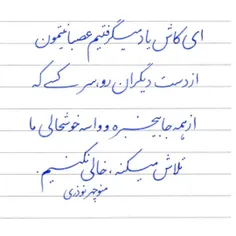 ای کاش یاد میگرفتیم عصبانیتمون
از دست دیگران رو، سر کسے که
از همه جا بیخبره و واسه خوشحالی ما
تلاش میکنه، خالی نکنیم.
منوچهر نوذری